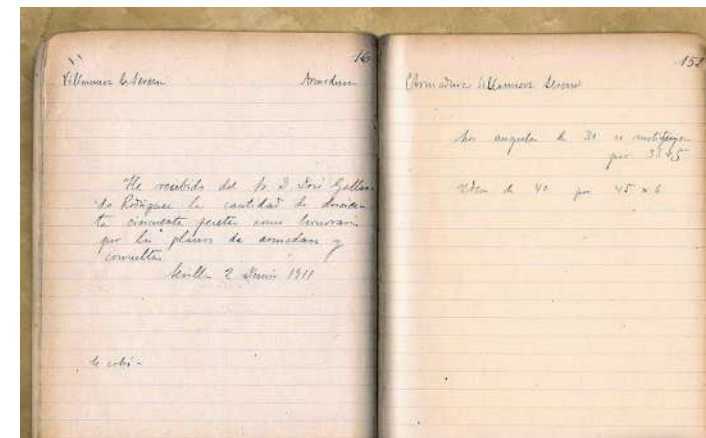 16
Villanueva la Serena Armadura
He recibido del Sr D José Gallar
do Rodriguez la cantidad de doscien
ta cincuenta pesetas como honorario
por los planos de armadura y
consultas
Sevilla 2 Junio 1911
le cobré -
152
Armadura Villanueva Serena
Los angulos de 30 se sustituyen
por 35
Idem de 40 por 45 x 6